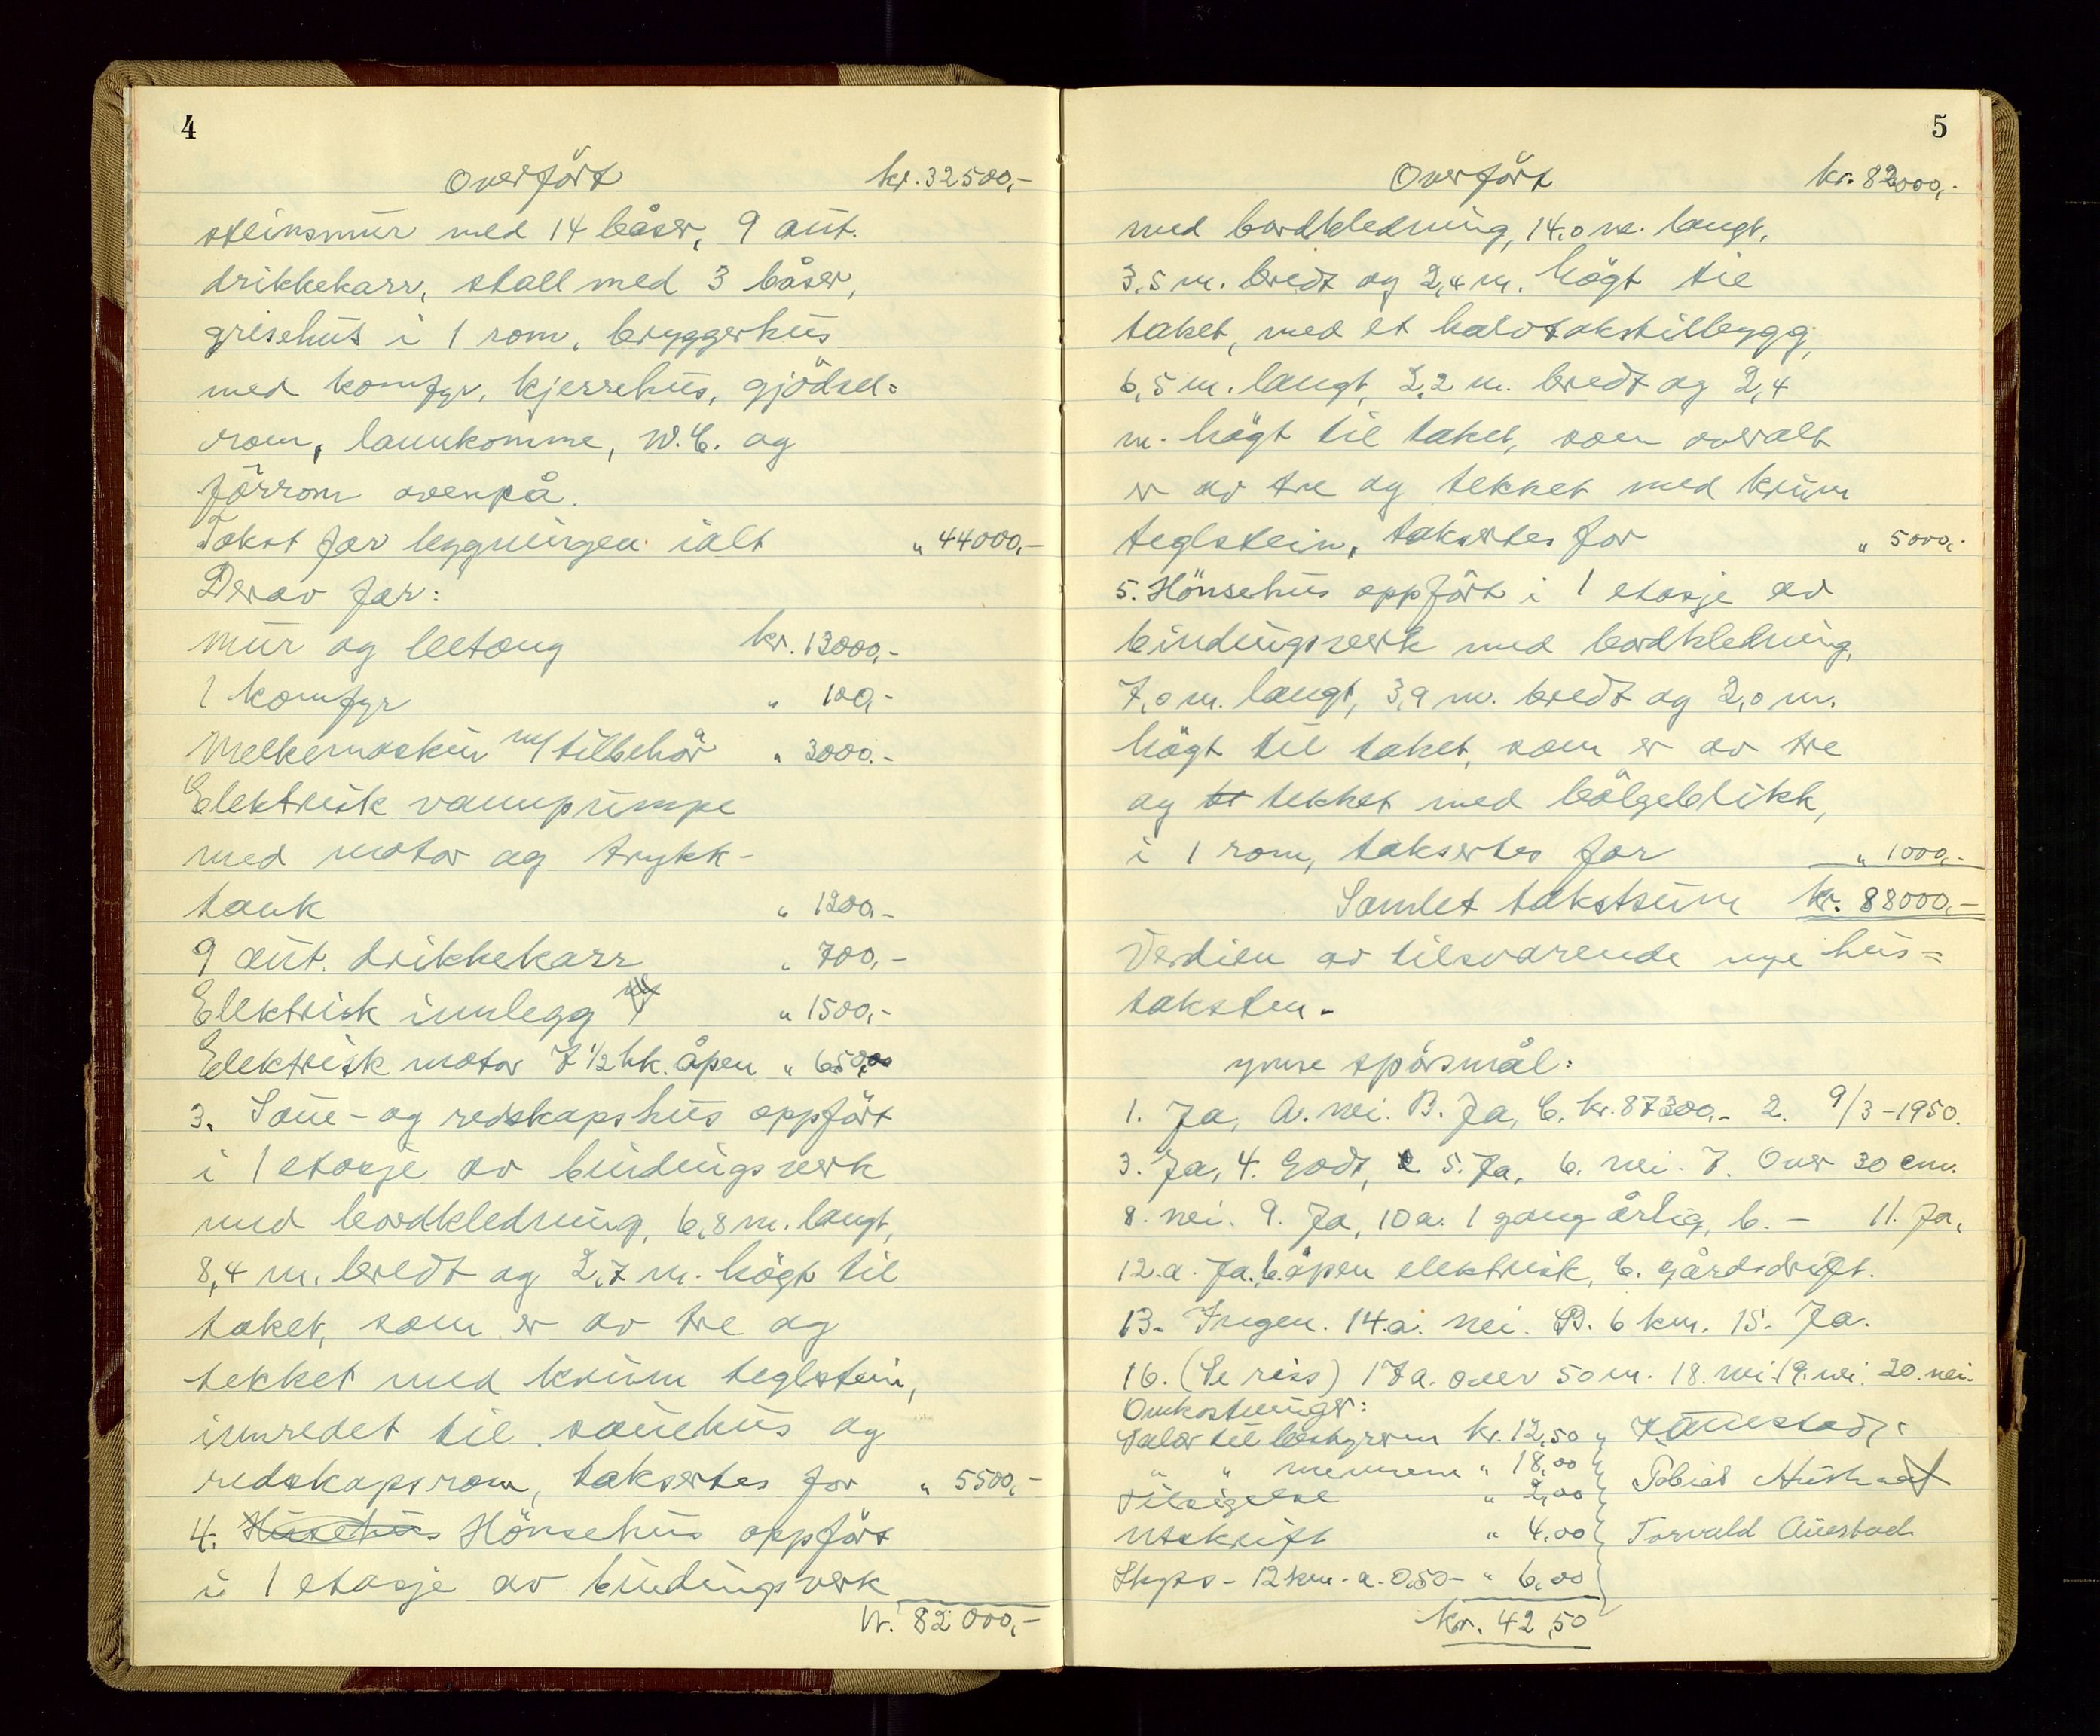 4
Overfört kr. 32500,-
steinsmur med 14 båser, 9 aut.
drikkekarr, stall med 3 båser,
grisehus i 1 rom, bryggerhus
med komfyr, kjerrehus, gjödsel=
rom, lannkomme, W.C. og
förrom ovenpå.
Takst for bygningen ialt " 44000,-
Derav for:
mur og betong kr. 13000,-
1 komfyr " 100,-
Melkemaskin m/tilbehör " 3000.-
Elektrisk vannpumpe
med motor og trykk-
tank " 1200,-
9 aut. drikkekarr " 700,-
Elektrisk innlegg " 1500,-
Elektrisk motor 7 1/2 hk. åpen " 650,00
3. Saue- og redskapshus oppfört
i 1 etasje av bindingsverk
med bordkledning, 6,8 m. langt,
8,4 m. bredt og 2,7 m. högt til
taket, som er av tre og
tekket med krum teglstein,
innredet til sauehus og
redskapsrom, taksertes for " 5500,-
4. Hönsehus oppfört
i 1 etasje av bindingsverk
kr. 82000,-
5
Overfört kr. 82000,-
med bordkledning, 14,0 m. langt,
3,5 m. bredt og 2,4 m. högt til
taket, med et halvtakstilbygg,
6,5 m. langt, 2,2 m. bredt og 2,4
m. högt til taket, som overalt
er av tre og tekket med krum
teglstein, taksertes for " 5000,-
5. Hönsehus oppfört i 1 etasje av
bindingsverk med bordkledning,
7,0 m. langt, 3,9 m. bredt og 2,0 m.
högt til taket, som er av tre
og tekket med bölgeblikk,
i 1 rom, taksertes for " 1000,-
Samlet takstsum kr. 88000,-
Verdien av tilsvarende nye hus=
taksten.
Ymse spörsmål:
1. Ja, A. nei. B. Ja, C. kr. 87300,- 2. 9/3-1950.
3. Ja, 4. Godt, 5. Ja, 6. nei. 7. Over 30 cm.
8. nei. 9. Ja, 10a. 1 gang årlig, b. - 11. Ja,
12.a. Ja. b. åpen elektrisk, C. gårdsdrift.
13. Ingen. 14.a. nei. B. 6 km. 15. Ja.
16. (Se riss) 17a. over 50 m. 18. nei. 19. nei. 20. nei.
Omkostninger:
Salær til bestyreren kr. 12,50
" " mennene " 18,00 Tobias
Tilsigelse " 2,00
Utskrift " 4.00 Torvald Auestad
Skyss - 12 km. a. 0,50 - " 6,00
kr. 42,50